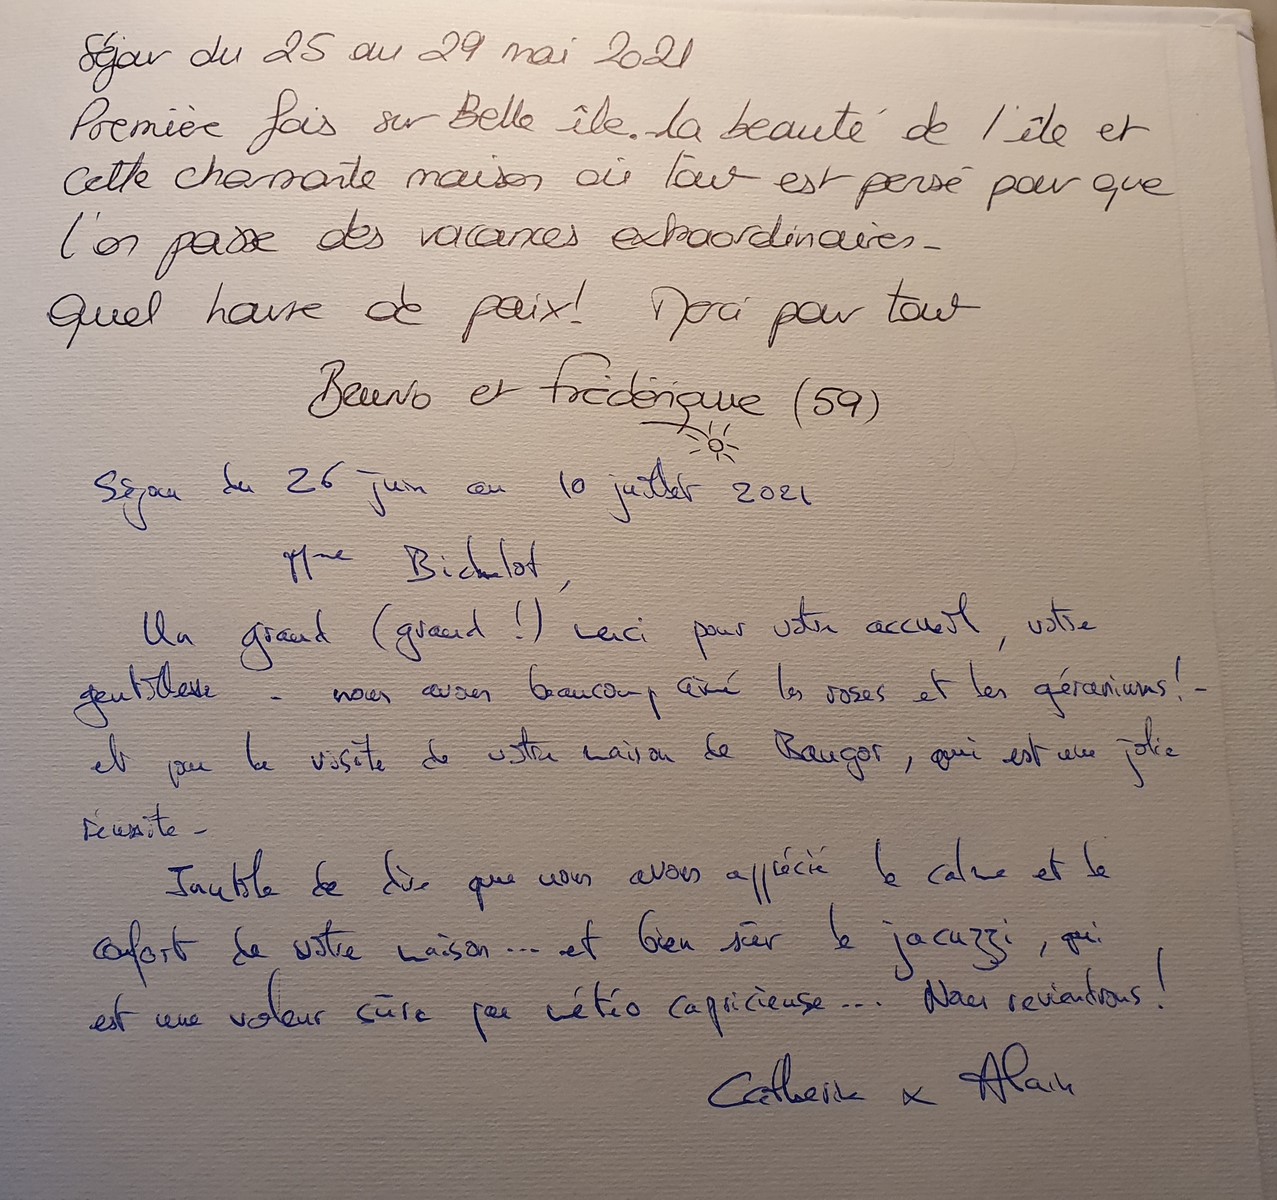 Séjour du 25 au 29 mai 2021
Première fois sur Belle île. La beauté de l'île et
cette charmante maison où tout est pensé pour que
l'on passe des vacances extraordinaires -
Quel havre de paix! Merci pour tout
Bruno et Frédérique (59)
Séjour du 26 juin au 10 juillet 2021
Mme Bichelot,
Un grand (grand !) merci pour votre accueil, votre
gentillesse - nous avons beaucoup aimé les roses et les géraniums! -
et pour la visite de votre maison de Bangor, qui est une jolie
réussite -
Inutile de dire que nous avons apprécié le calme et le
confort de votre maison... et bien sûr le jacuzzi, qui
est une valeur sûre par météo capricieuse... Nous reviendrons!
Catherine & Alain